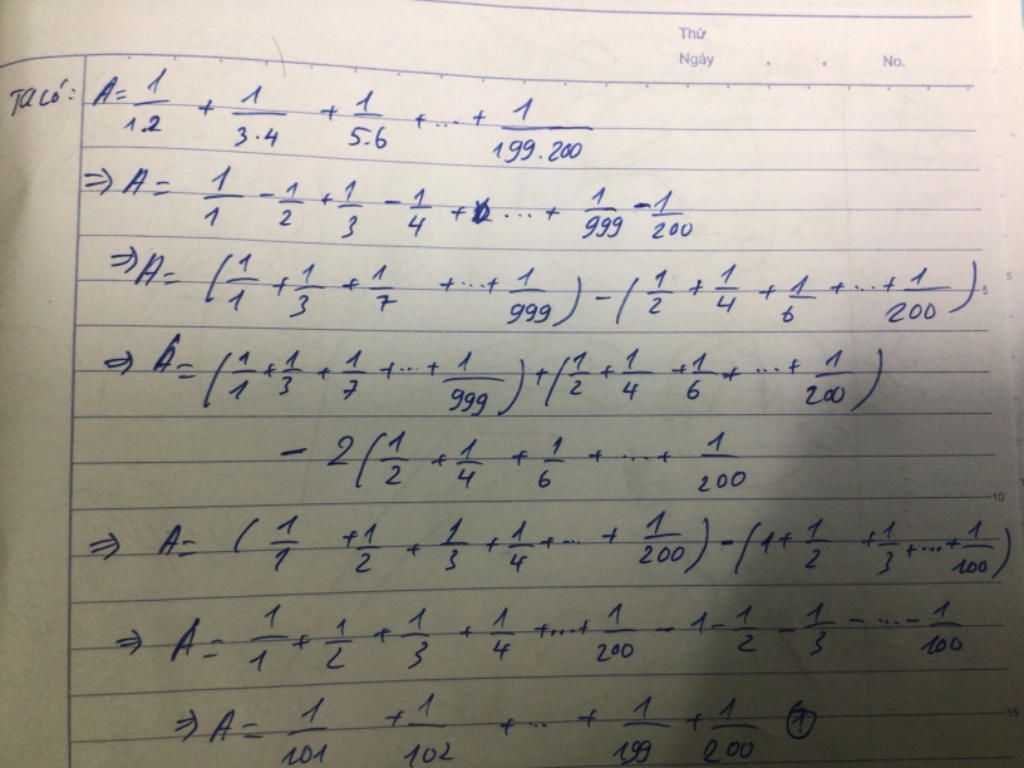 Thứ
Ngày . . No.
Ta có: A = 1/1.2 + 1/3.4 + 1/5.6 + ... + 1/199.200
=> A = 1/1 - 1/2 + 1/3 - 1/4 + ... + 1/999 - 1/200
=> A = (1/1 + 1/3 + 1/7 + ... + 1/999) - (1/2 + 1/4 + 1/6 + ... + 1/200)
5
=> A = (1/1 + 1/3 + 1/7 + ... + 1/999) + (1/2 + 1/4 + 1/6 + ... + 1/200)
- 2(1/2 + 1/4 + 1/6 + ... + 1/200
10
=> A = (1/1 + 1/2 + 1/3 + 1/4 + ... + 1/200) - (1 + 1/2 + 1/3 + ... + 1/100)
=> A = 1/1 + 1/2 + 1/3 + 1/4 + ... + 1/200 - 1 - 1/2 - 1/3 - ... - 1/100
=> A = 1/101 + 1/102 + ... + 1/199 + 1/200 ①
15